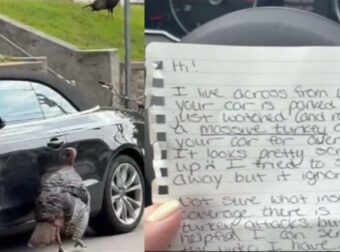 Hi!
I live across from
your car is parked
just watched (and r
a massive turkey
your car for over
It looks pretty scr
up. I tried to s
away but it ignor
Not sure what ins
coverage there is
turkey attacks, but
helpful I can se
the video I have